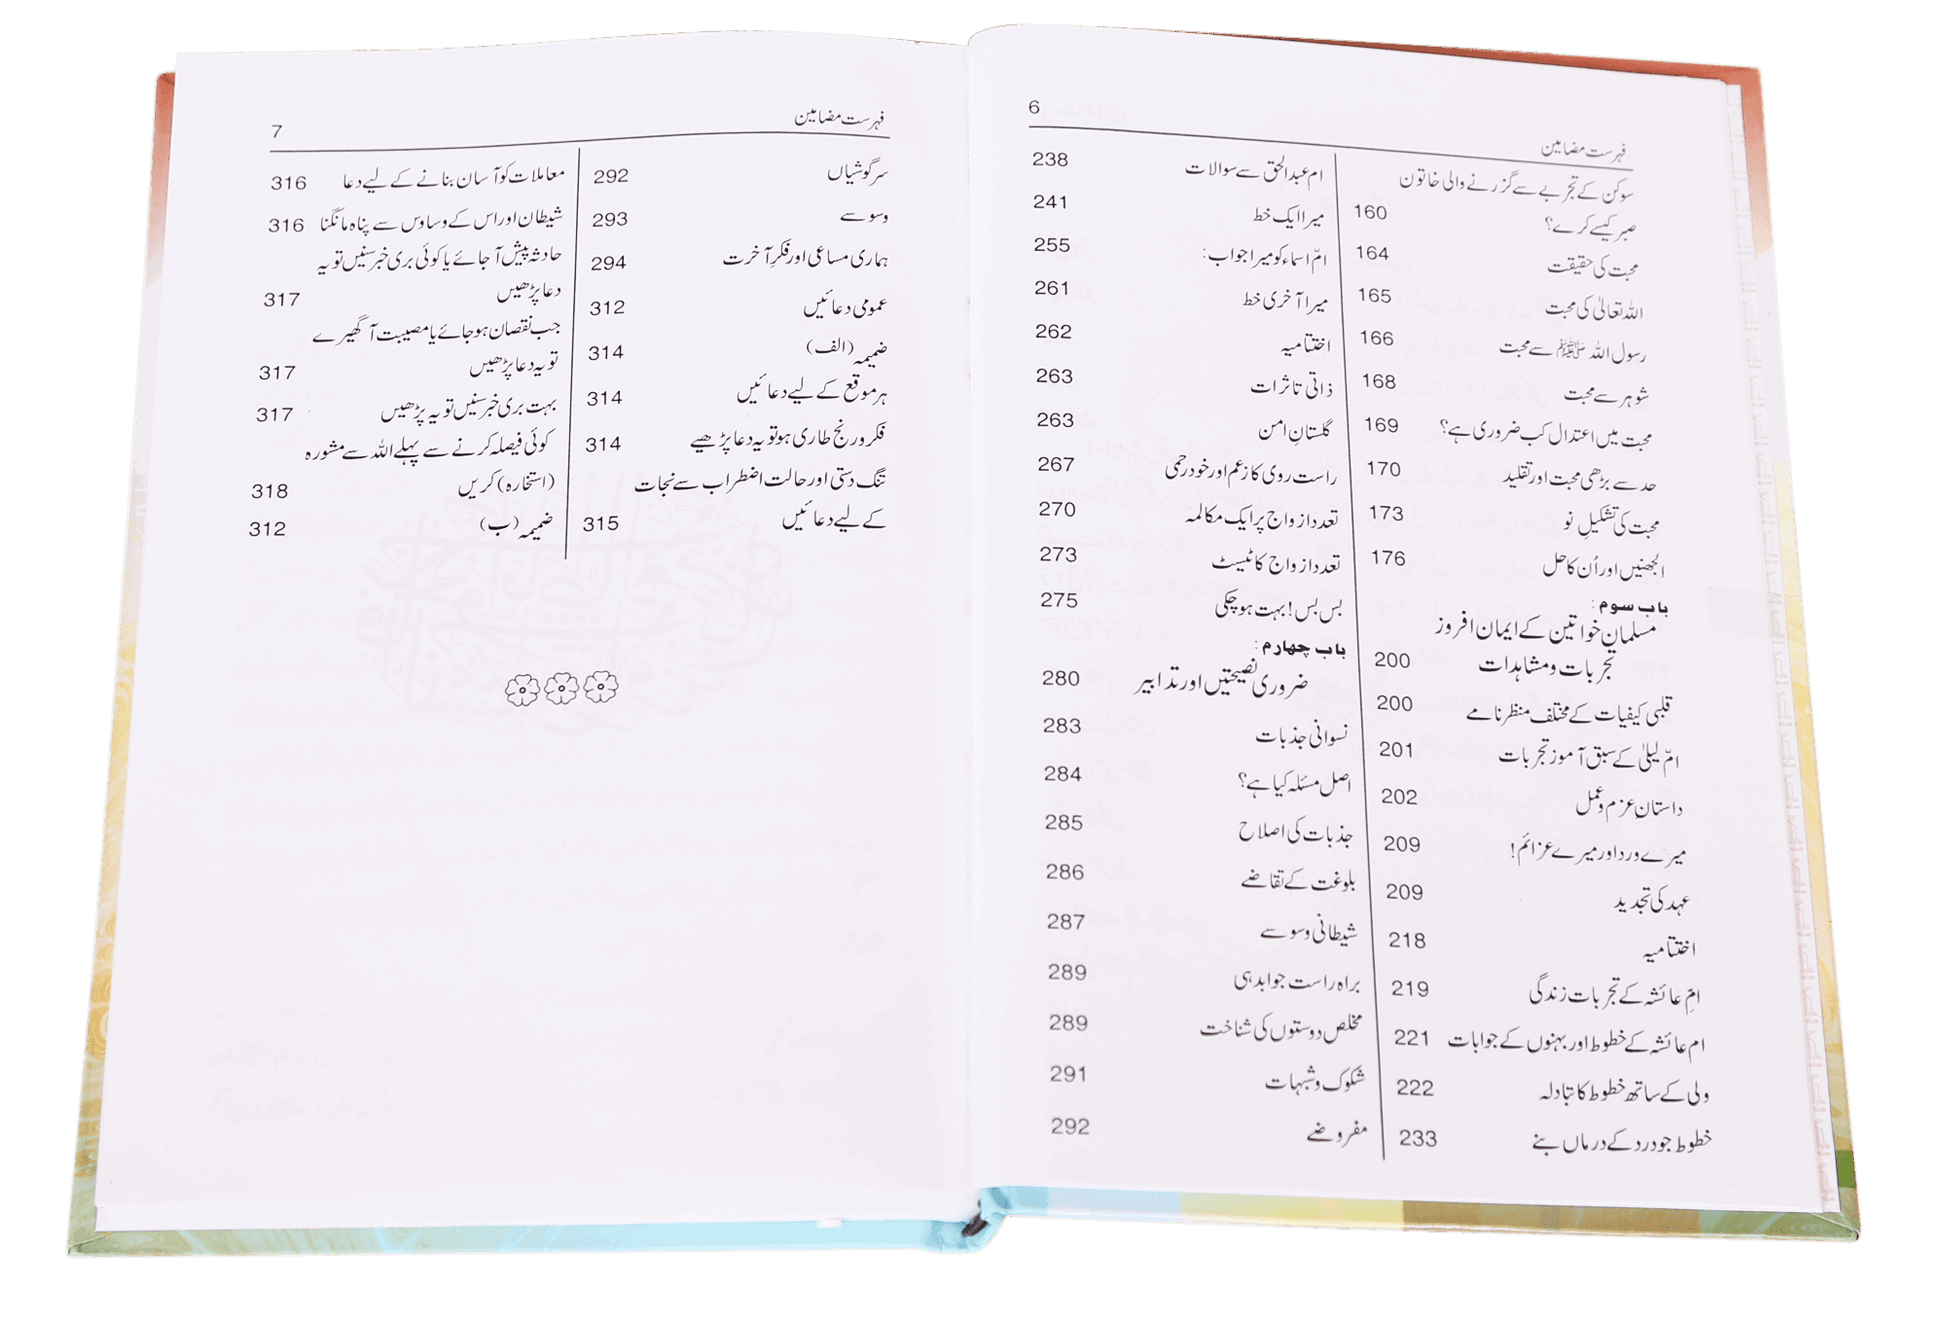 6
فہرست مضامین
سوکن کے تجربے سے گزرنے والی خاتون
صبر کیسے کرے؟ 160
محبت کی حقیقت 164
اللہ تعالیٰ کی محبت 165
رسول اللہ ﷺ سے محبت 166
شوہر سے محبت 168
محبت میں اعتدال کب ضروری ہے؟ 169
حد سے بڑھی محبت اور تقلید 170
محبت کی تشکیلِ نو 173
الجھنیں اور اُن کا حل 176
باب سوم:
مسلمان خواتین کے ایمان افروز
تجربات و مشاہدات 200
قلبی کیفیات کے مختلف منظرنامے 200
امّ لیلیٰ کے سبق آموز تجربات 201
داستانِ عزم و عمل 202
میرے ورد اور میرے عزائم! 209
عہد کی تجدید 209
اختتامیہ 218
امِّ عائشہ کے تجربات زندگی 219
ام عائشہ کے خطوط اور بہنوں کے جوابات 221
ولی کے ساتھ خطوط کا تبادلہ 222
خطوط جو درد کے درماں بنے 233
ام عبدالحق سے سوالات 238
میرا ایک خط 241
امّ اسماء کو میرا جواب: 255
میرا آخری خط 261
اختتامیہ 262
ذاتی تاثرات 263
گلستانِ امن 263
راست روی کا زعم اور خود رحمی 267
تعدد ازواج پر ایک مکالمہ 270
تعدد ازواج کا ٹیسٹ 273
بس بس! بہت ہو چکی 275
باب چهارم:
ضروری نصیحتیں اور تدابیر 280
نسوانی جذبات 283
اصل مسئلہ کیا ہے؟ 284
جذبات کی اصلاح 285
بلوغت کے تقاضے 286
شیطانی وسوسے 287
براہ راست جوابدہی 289
مخلص دوستوں کی شناخت 289
شکوک و شبہات 291
مفروضے 292
فہرست مضامین
7
سرگوشیاں 292
وسوسے 293
ہماری مساعی اور فکرِ آخرت 294
عمومی دعائیں 312
ضمیمہ (الف) 314
ہر موقع کے لیے دعائیں 314
فکر و رنج طاری ہو تو یہ دعا پڑھیے 314
تنگ دستی اور حالت اضطراب سے نجات
کے لیے دعائیں 315
معاملات کو آسان بنانے کے لیے دعا 316
شیطان اور اس کے وساوس سے پناہ مانگنا 316
حادثہ پیش آجائے یا کوئی بری خبر سنیں تو یہ
دعا پڑھیں 317
جب نقصان ہو جائے یا مصیبت آ گھیرے
تو یہ دعا پڑھیں 317
بہت بری خبر سنیں تو یہ پڑھیں 317
کوئی فیصلہ کرنے سے پہلے اللہ سے مشورہ
(استخارہ) کریں 318
ضمیمہ (ب) 312